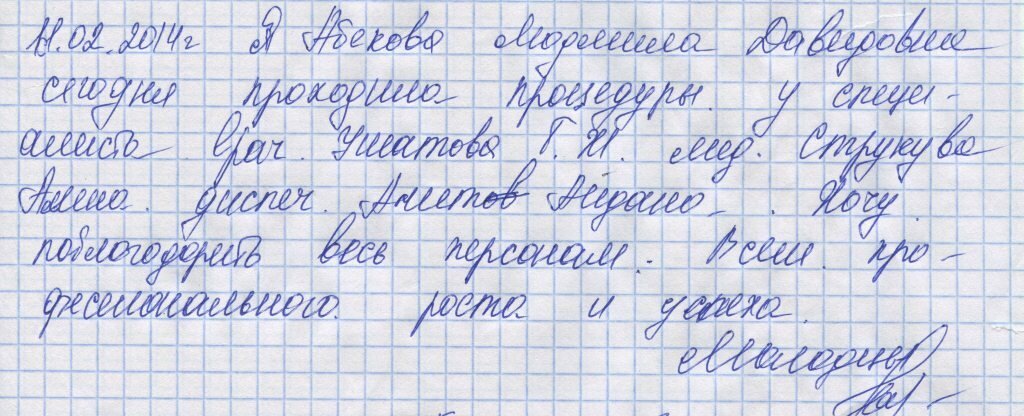 11.02.2014г Я Абекова Людмила Давидовна
сегодня проходила процедуры. у специ-
алиста Врач. Ушатова Г. Ж. мед. Струкува
Алина. диспеч. Аметов Айдана. Хочу
поблогодарить весь персонал. Всем. про-
фисеианального роста и успеха.
Молодцы.